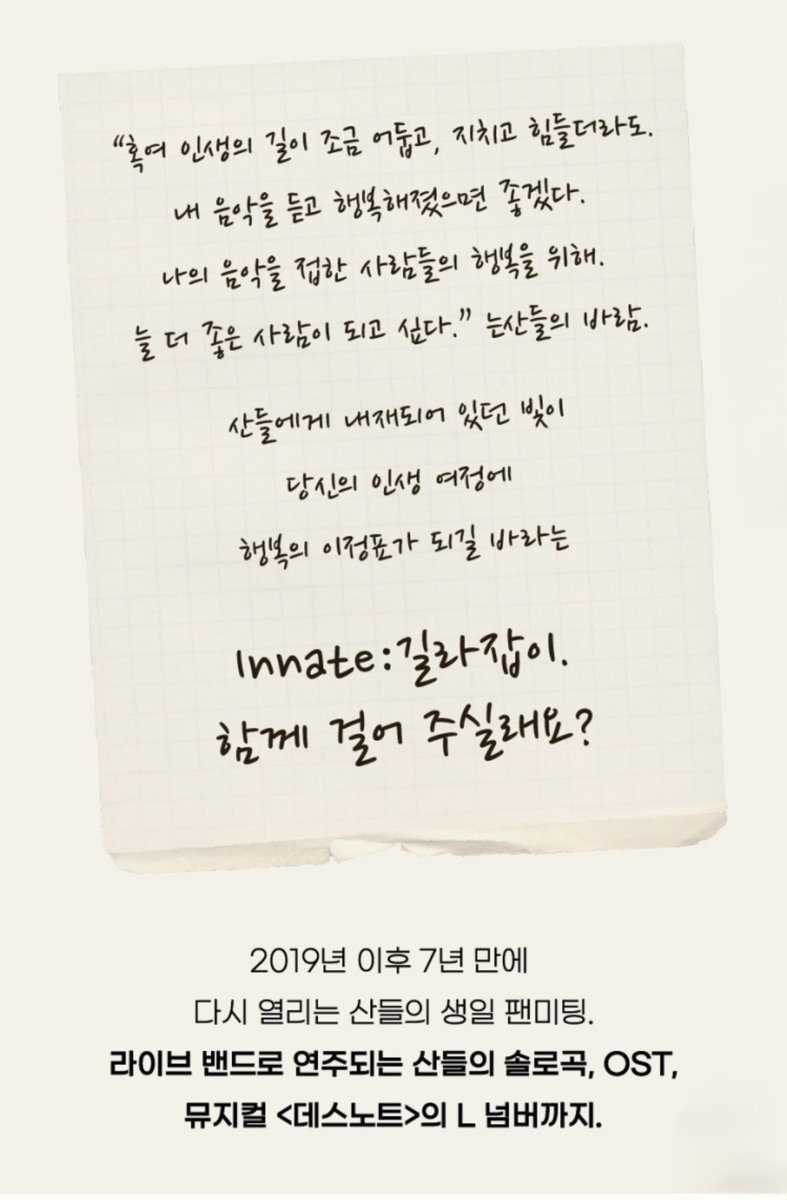 “혹여 인생의 길이 조금 어둡고, 지치고 힘들더라도.
내 음악을 듣고 행복해졌으면 좋겠다.
나의 음악을 접한 사람들의 행복을 위해.
늘 더 좋은 사람이 되고 싶다.” 는산들의 바람.
산들에게 내재되어 있던 빛이
당신의 인생 여정에
행복의 이정표가 되길 바라는
Innate:길라잡이.
함께 걸어 주실래요?
2019년 이후 7년 만에
다시 열리는 산들의 생일 팬미팅.
라이브 밴드로 연주되는 산들의 솔로곡, OST,
뮤지컬 <데스노트>의 L 넘버까지.